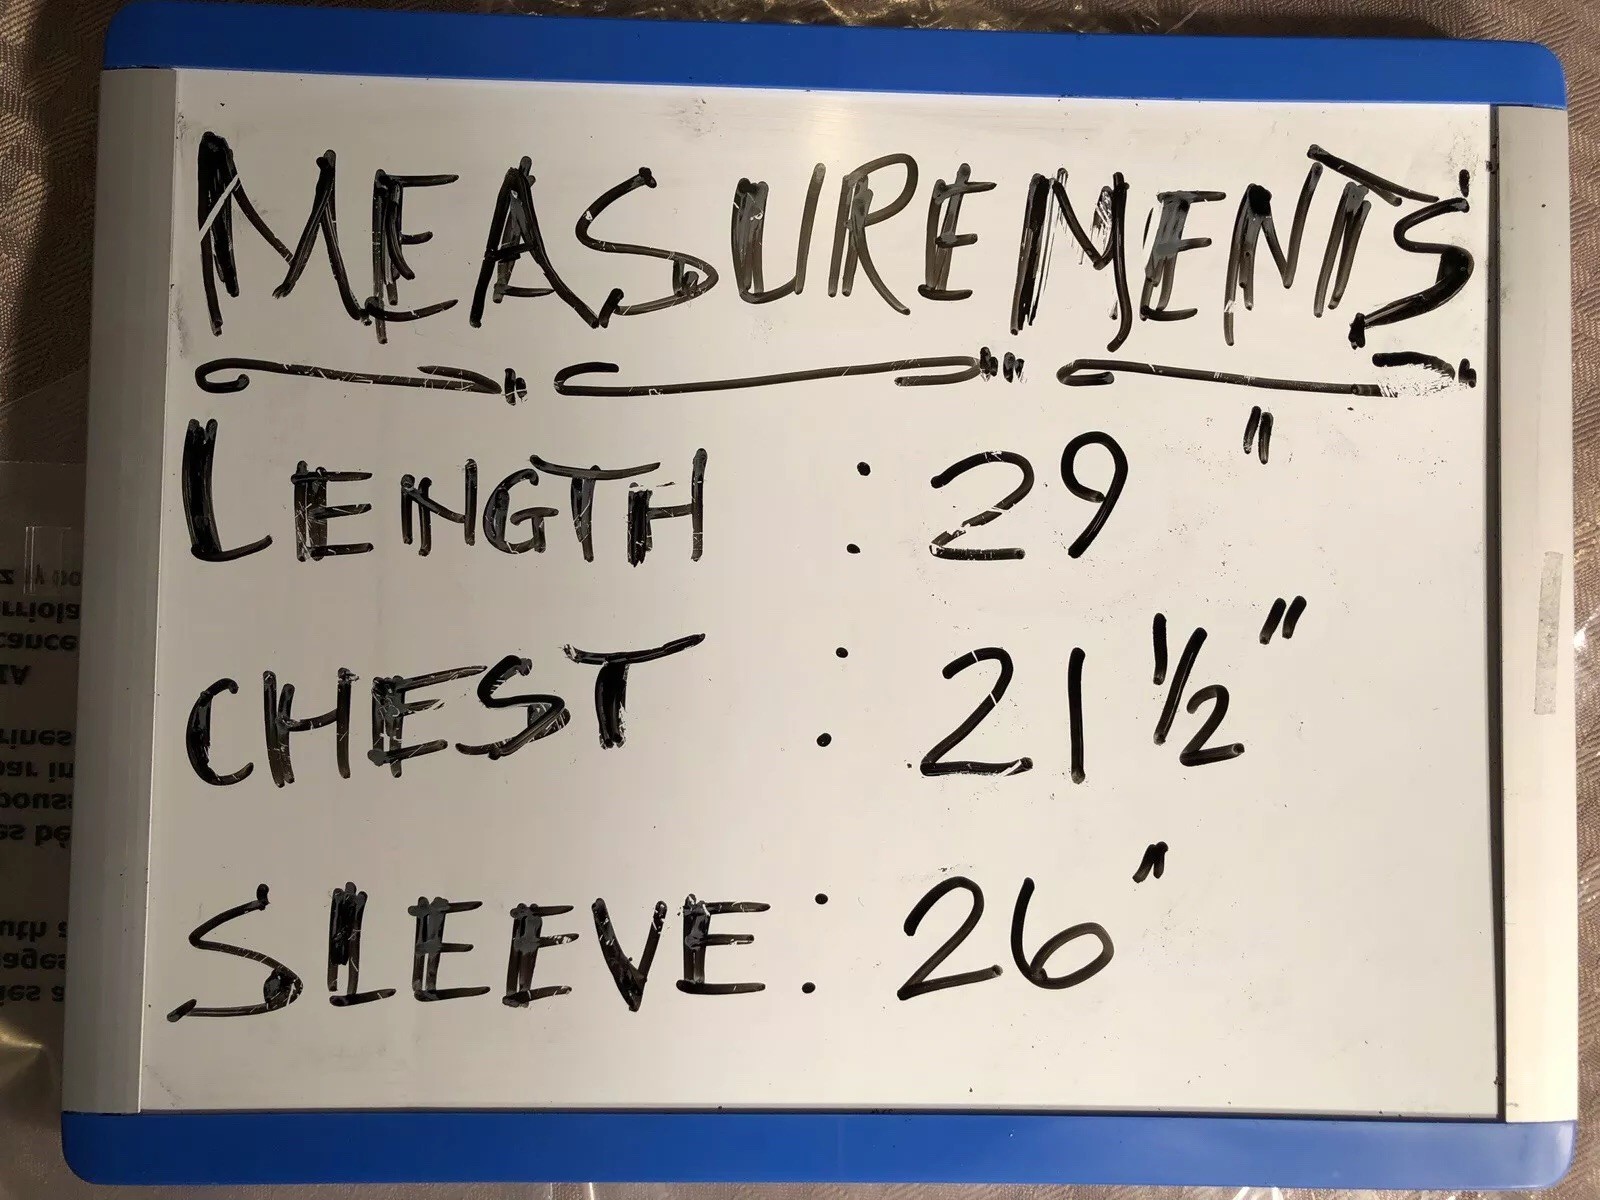 MEASUREMENTS
LENGTH : 29 "
CHEST : 21 1/2"
SLEEVE : 26"